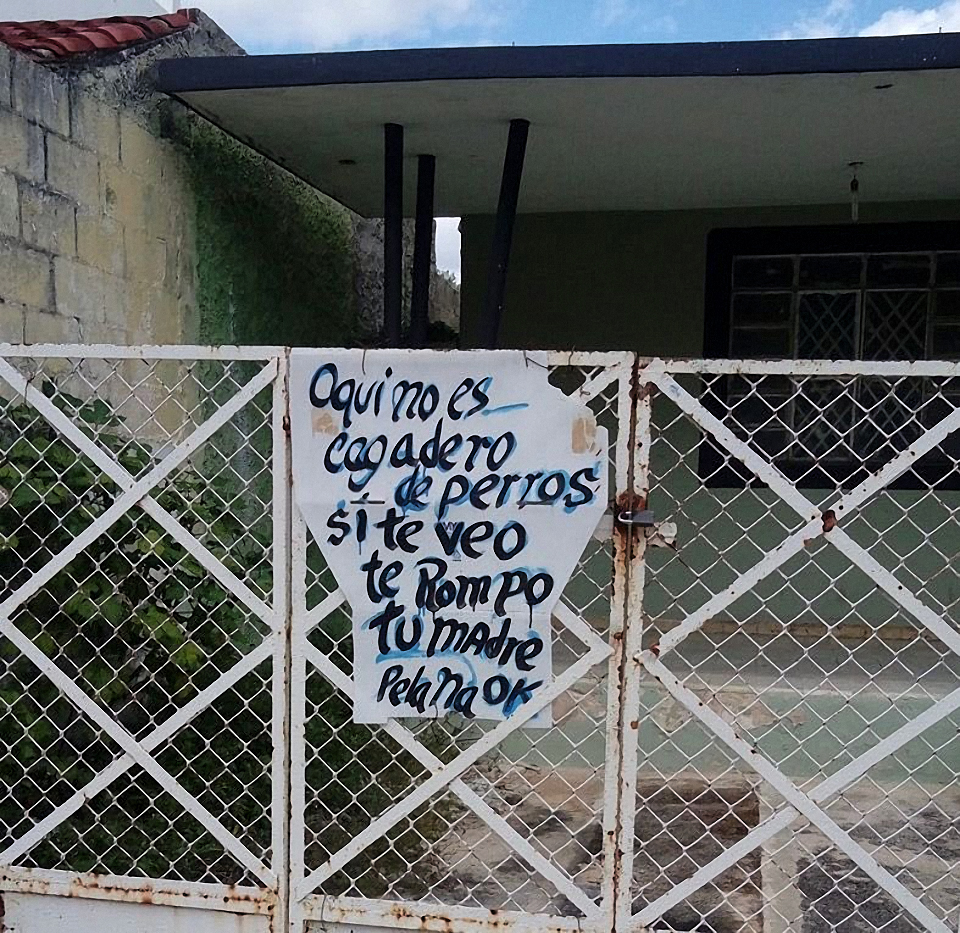 Aqui no es
cagadero
de perros
si te veo
te Rompo
tu mAdre
Pelana OK